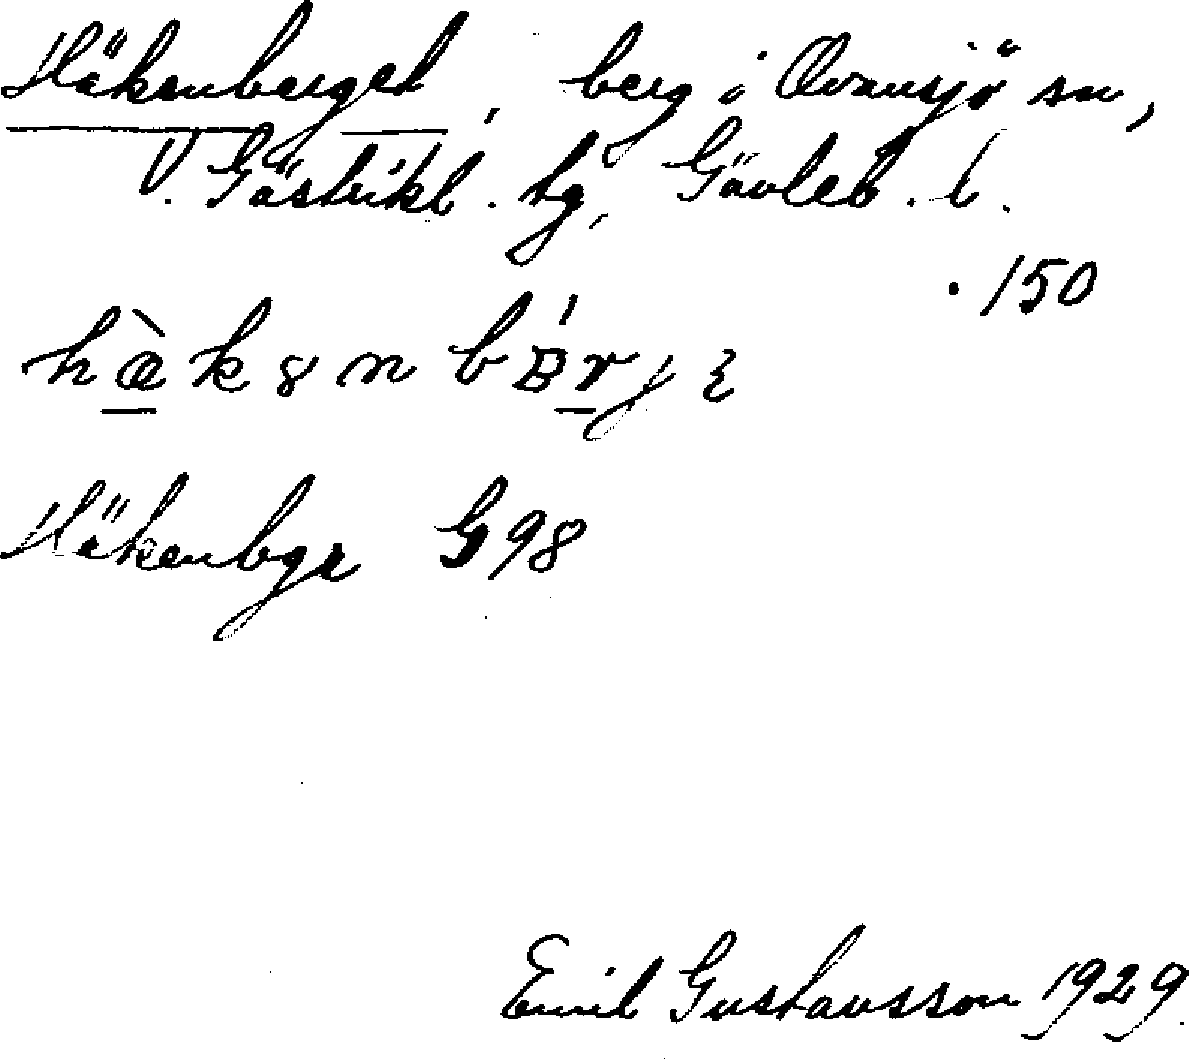 Häkenberget, berg i Ovansjö sn,
V. Gästrikl. tg, Gävleb. l.
. 150
Häkenbge G98
Emil Gustavsson 1929.